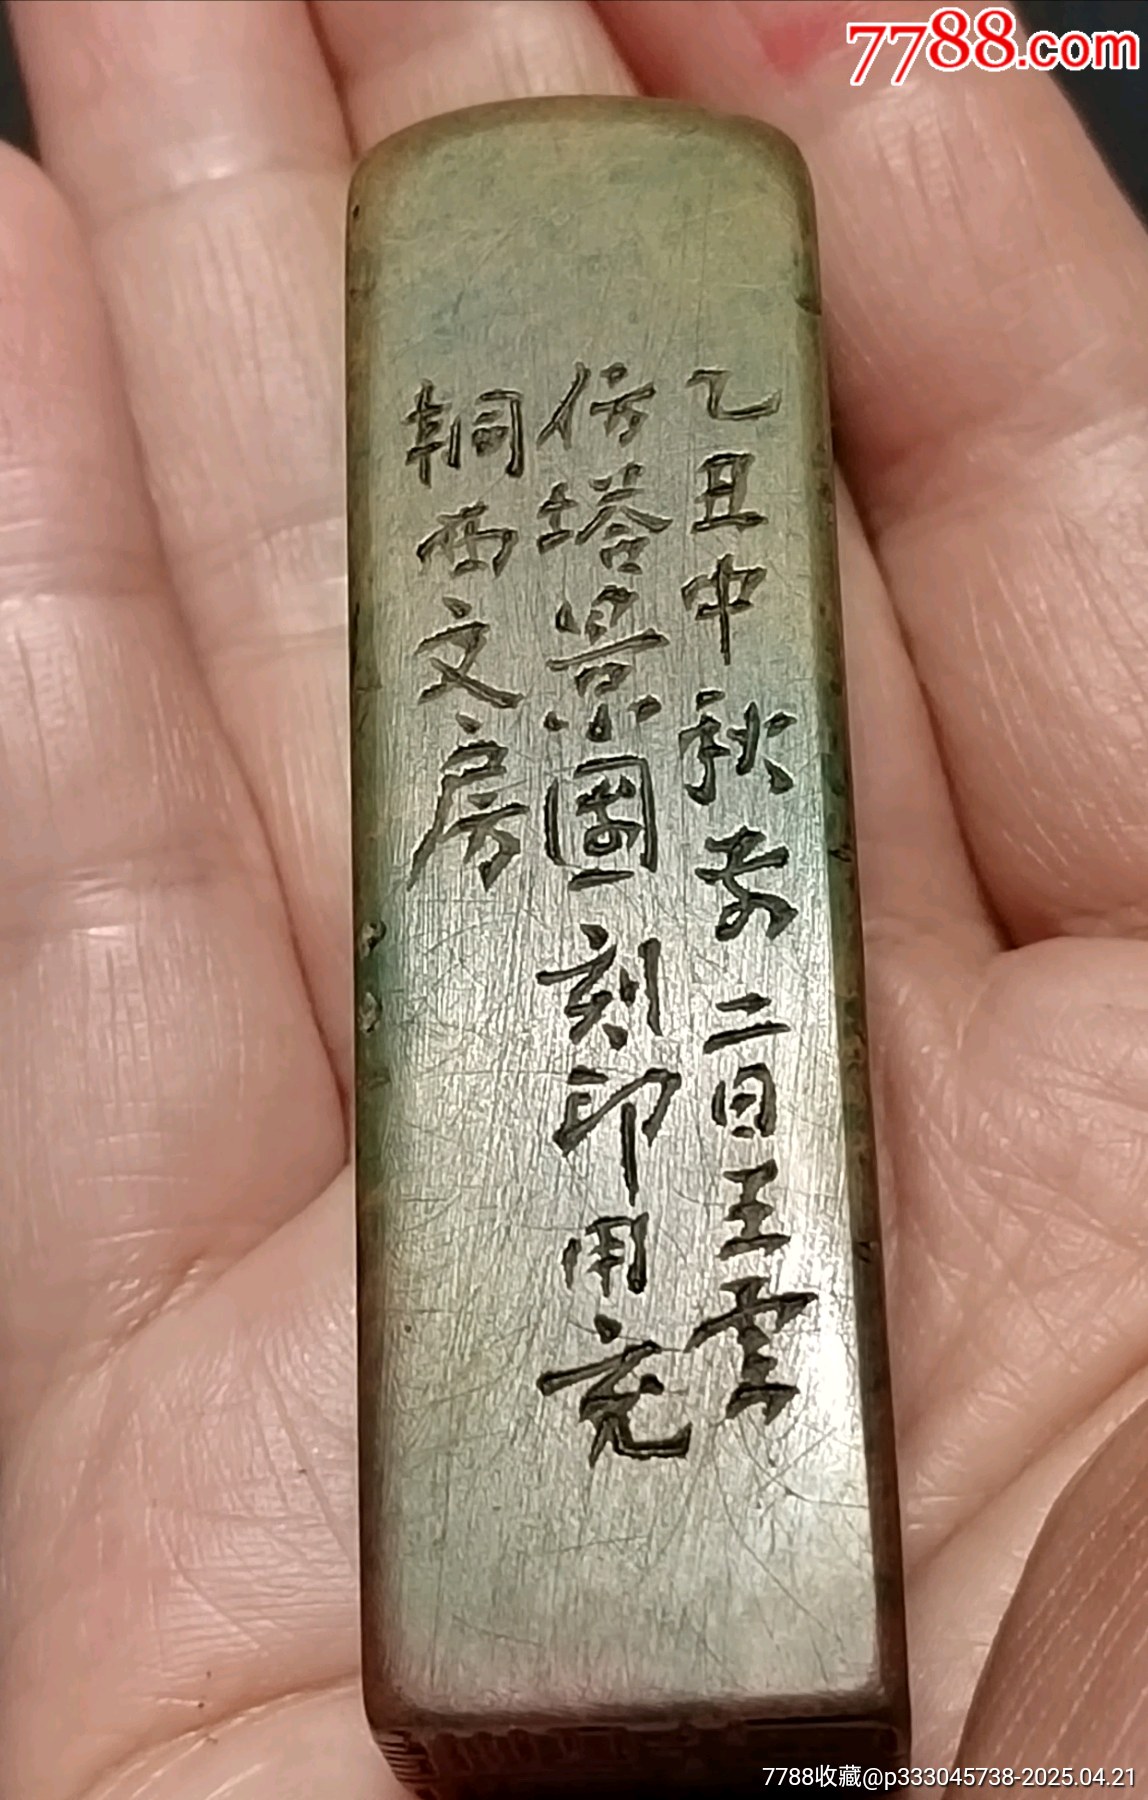 7788.com
乙丑中秋前二日王云
仿塔景图刻印用充
桐西文房
7788收藏@p333045738-2025.04.21